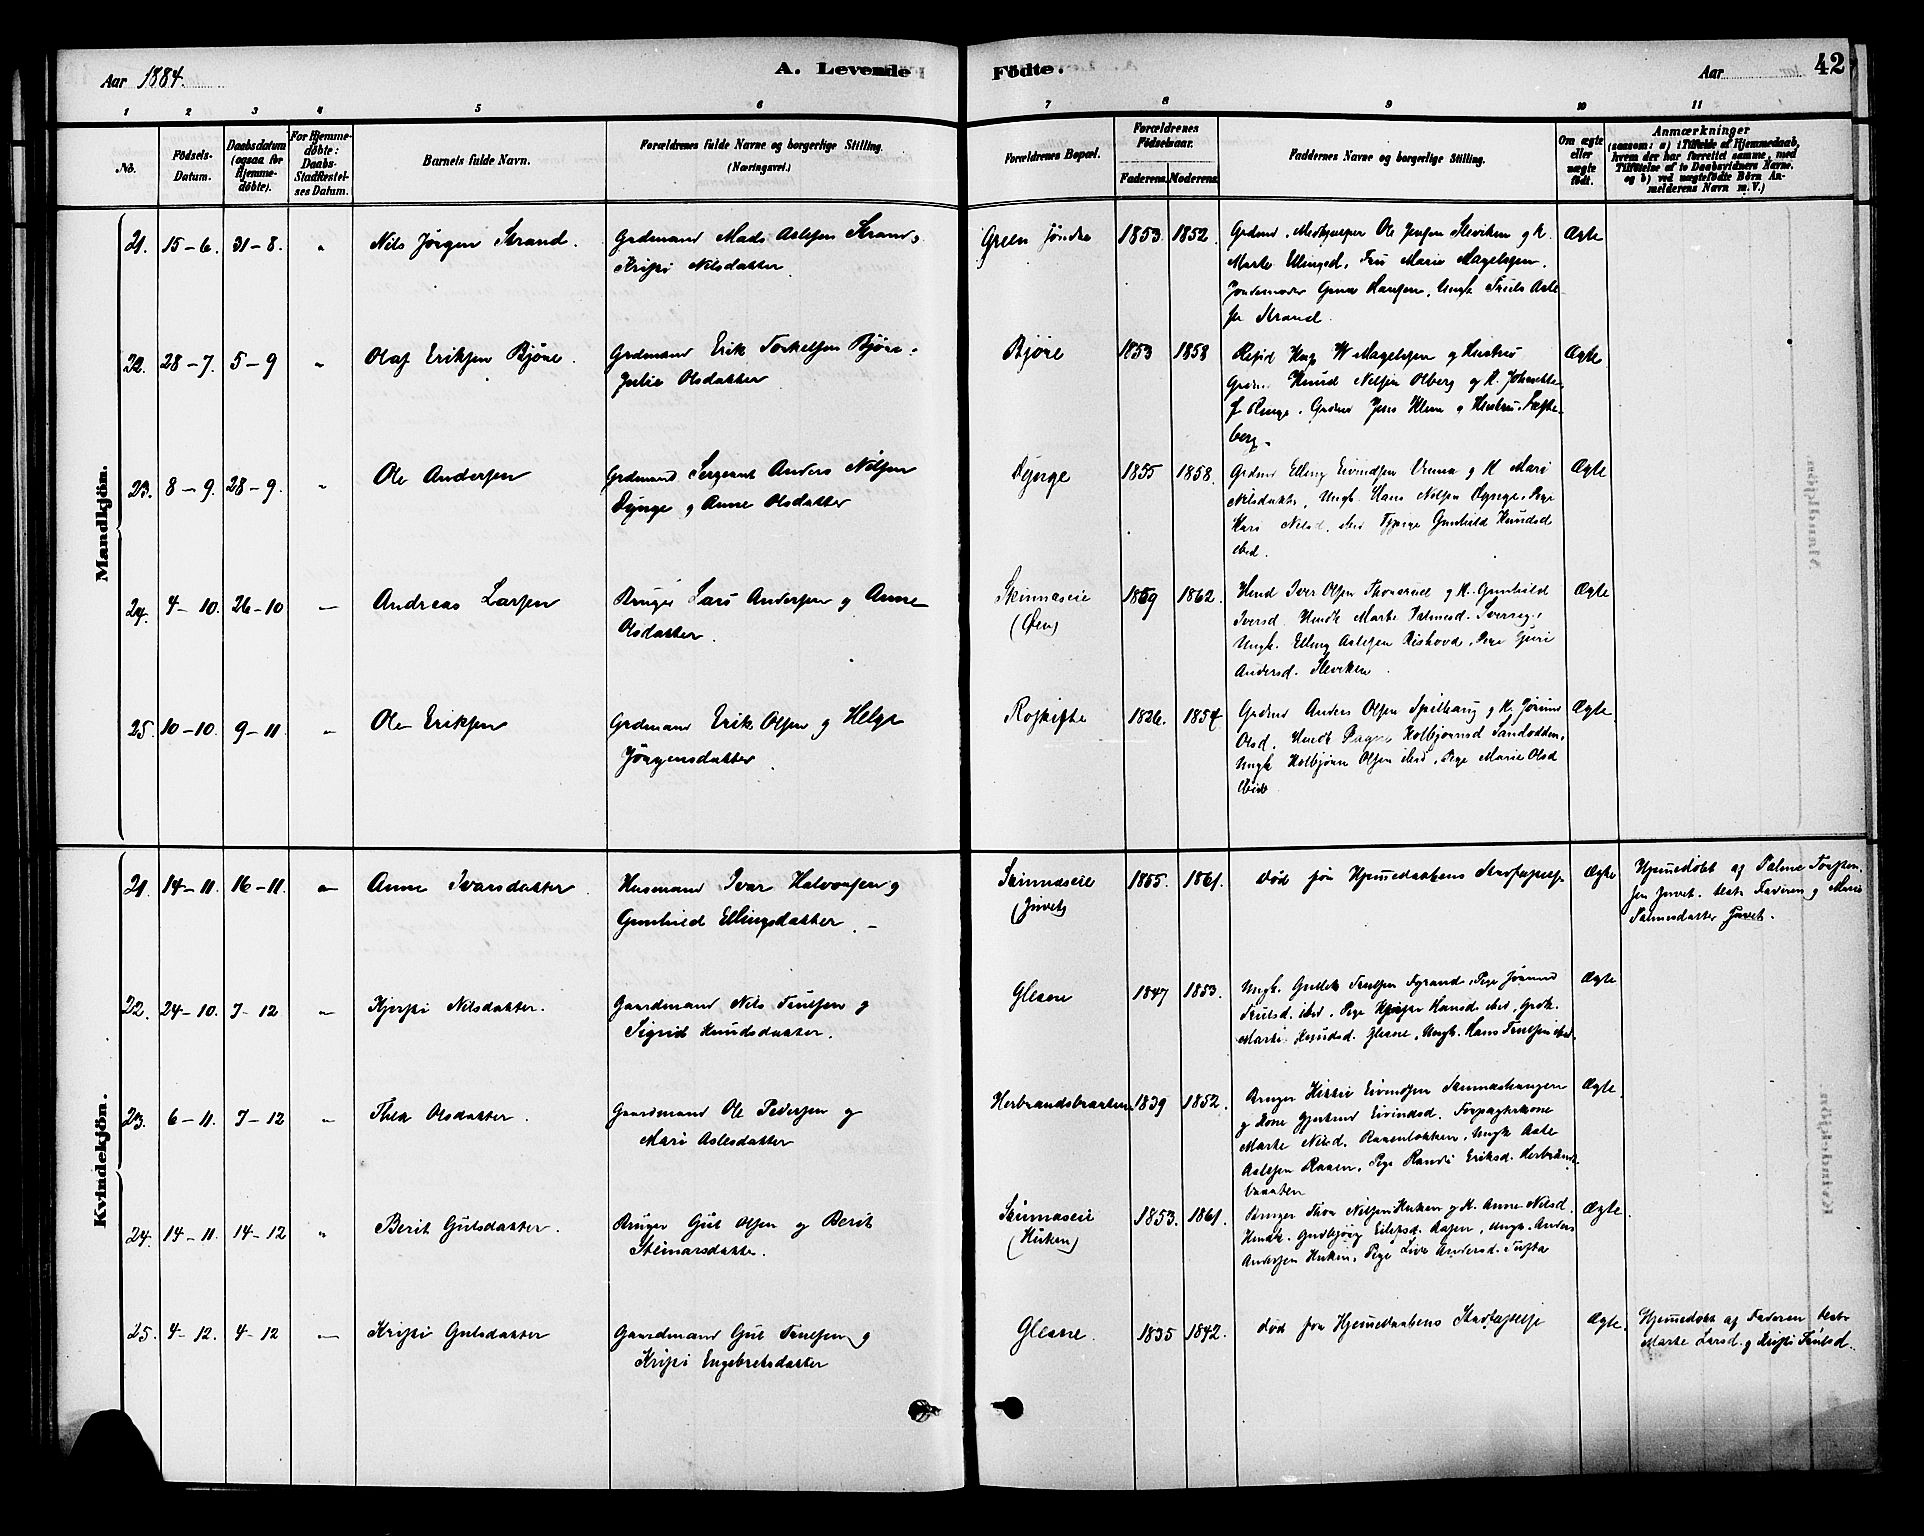 Aar 1884.
A. Levende
Födte.
Aar
42
1 2 3 4 5 6 7 8 9 10 11
No.
Födsels-Datum.
Daabsdatum (ogsaa for Hjemme-döbte).
For Hjemme-döbte: Daabs-Stadfæstel-ses Datum.
Barnets fulde Navn.
Forældrenes fulde Navne og borgerlige Stilling.
(Næringsvei.)
Forældrenes Bopæl.
Forældrenes Födselsaar.
Faderens. Moderens.
Faddernes Navne og borgerlige Stilling.
Om ægte eller uægte födt.
Anmærkninger
(saasom: a) i Tilfælde af Hjemmedaab,
hvem der har forrettet samme, med
Tilföielse af to Daabsvidners Navne.
og b) ved uægtefödte Börn An-
melderens Navn m. V.)
Mandkjön.
21. 15-6. 31-8. " Nils Jørgen Strand. Grdmand Mads Aslesen Strand,
Kristi Nilsdatter.
Green 1853. 1852.
Marte Ellingsd. Fru Marie Magelssen.
Jordemoder Hansen, Ungk Truls Asle-
sen Strand.
Ægte
22. 28-7. 5-9 " Olaf Eriksen Bjøre. Grdmand Erik Torkelsen Bjøre.
Julie Olsdatter
Bjøre 1853 1858 W Magelssen og Hustru
Grdm. Knud Nilsen Olberg og K.
Ringe. Grdmd Jens Klem og Hustru.
berg.
Ægte
23. 8-9. 28-9. " Ole Andersen Grdmand Sergeant Anders Nilsen
Dynge og Anne Olsdatter
Dynge 1855 1858. Grdmd Elling Eivindsen og K Mari
Nilsdatter, Ungk. Hans Nilsen Dynge. Pige
Kari Nilsd. ibid Gunhild Knudsd
ibid.
Ægte
24. 4-10. 26-10 " Andreas Larsen Bruger Lars Andersen og Anne
Olsdatter.
Skinnaseie
(Øen)
1859 1862. Iver Olsen og K. Gunhild
Iversd. Marte
Ungk. Elling Aslesen Rishovd. Pige Guri
Andersd. Sleviken.
Ægte
25. 10-10. 9-11 " Ole Eriksen Grdmand Erik Olsen og Helge
Jörgensdatter
Roskifte 1826. 1854. Grdmd Anders Olsen Spilhaug og K. Jörund
Olsd. Kolbjørnsd Sandodden,
Ungk Kolbjørn Olsen ibid, Pige Marie Olsd
ibid
Ægte
Kvindekjön.
21. 14-11. 16-11. " Anne Ivarsdatter Husmand Ivar Halvorsen og
Gunhild Ellingsdatter.
Skinnaseie
(Juvet)
1855. 1861. død før Hjemmedaabens Stadfæstelse Ægte Hjemmedöbt af Palme Torsten-
sen Juvet. test. Faderen og Marie
Palmesdatter Juvet.
22. 24-10. 7-12 " Kjersti Nilsdatter. Gaardmand Nils Trulsen og
Sigrid Knudsdatter.
Glesne 1847 1853. Ungk. Gullik Trulsen Pige Jörund
Trulsd. ibid. Pige Hansd. ibid.
Marte Knudsd. Glesne, Ungk. Hans Trulsen ibid.
Ægte
23. 6-11. 7-12 " Thea Olsdatter. Gaardmand Ole Pedersen og
Mari Aslesdatter
Herbrandsbraaten 1839 1852. Bruger Eivindsen
og Kone Gjertrud Eivindsd. Forpagterkone
Marte Nilsd. Ungk Asle
Aslesen Raaen. Pige Randi Eriksd. Herbrands-
braaten
Ægte
24. 14-11. 14-12 " Berit Gulsdatter. Bruger Gul Olsen og Berit
Steinarsdatter.
Skinnaseie
(Kirken)
1853. 1861. Bruger Nilsen og K. Anne Nilsd.
Gudbjørg Eilefsd. Ungk. Anders
Andersen Pige Live Andersd. Tufta
Ægte
25. 4-12. 4-12 " Kristi Gulsdatter Gaardmand Gul Trulsen og
Kristi Engebretsdatter
Glesne. 1835 1842. død før Hjemmedaabens Stadfæstelse Ægte. Hjemmedöbt af Faderen test.
Marte Larsd. og Kristi Trulsd.